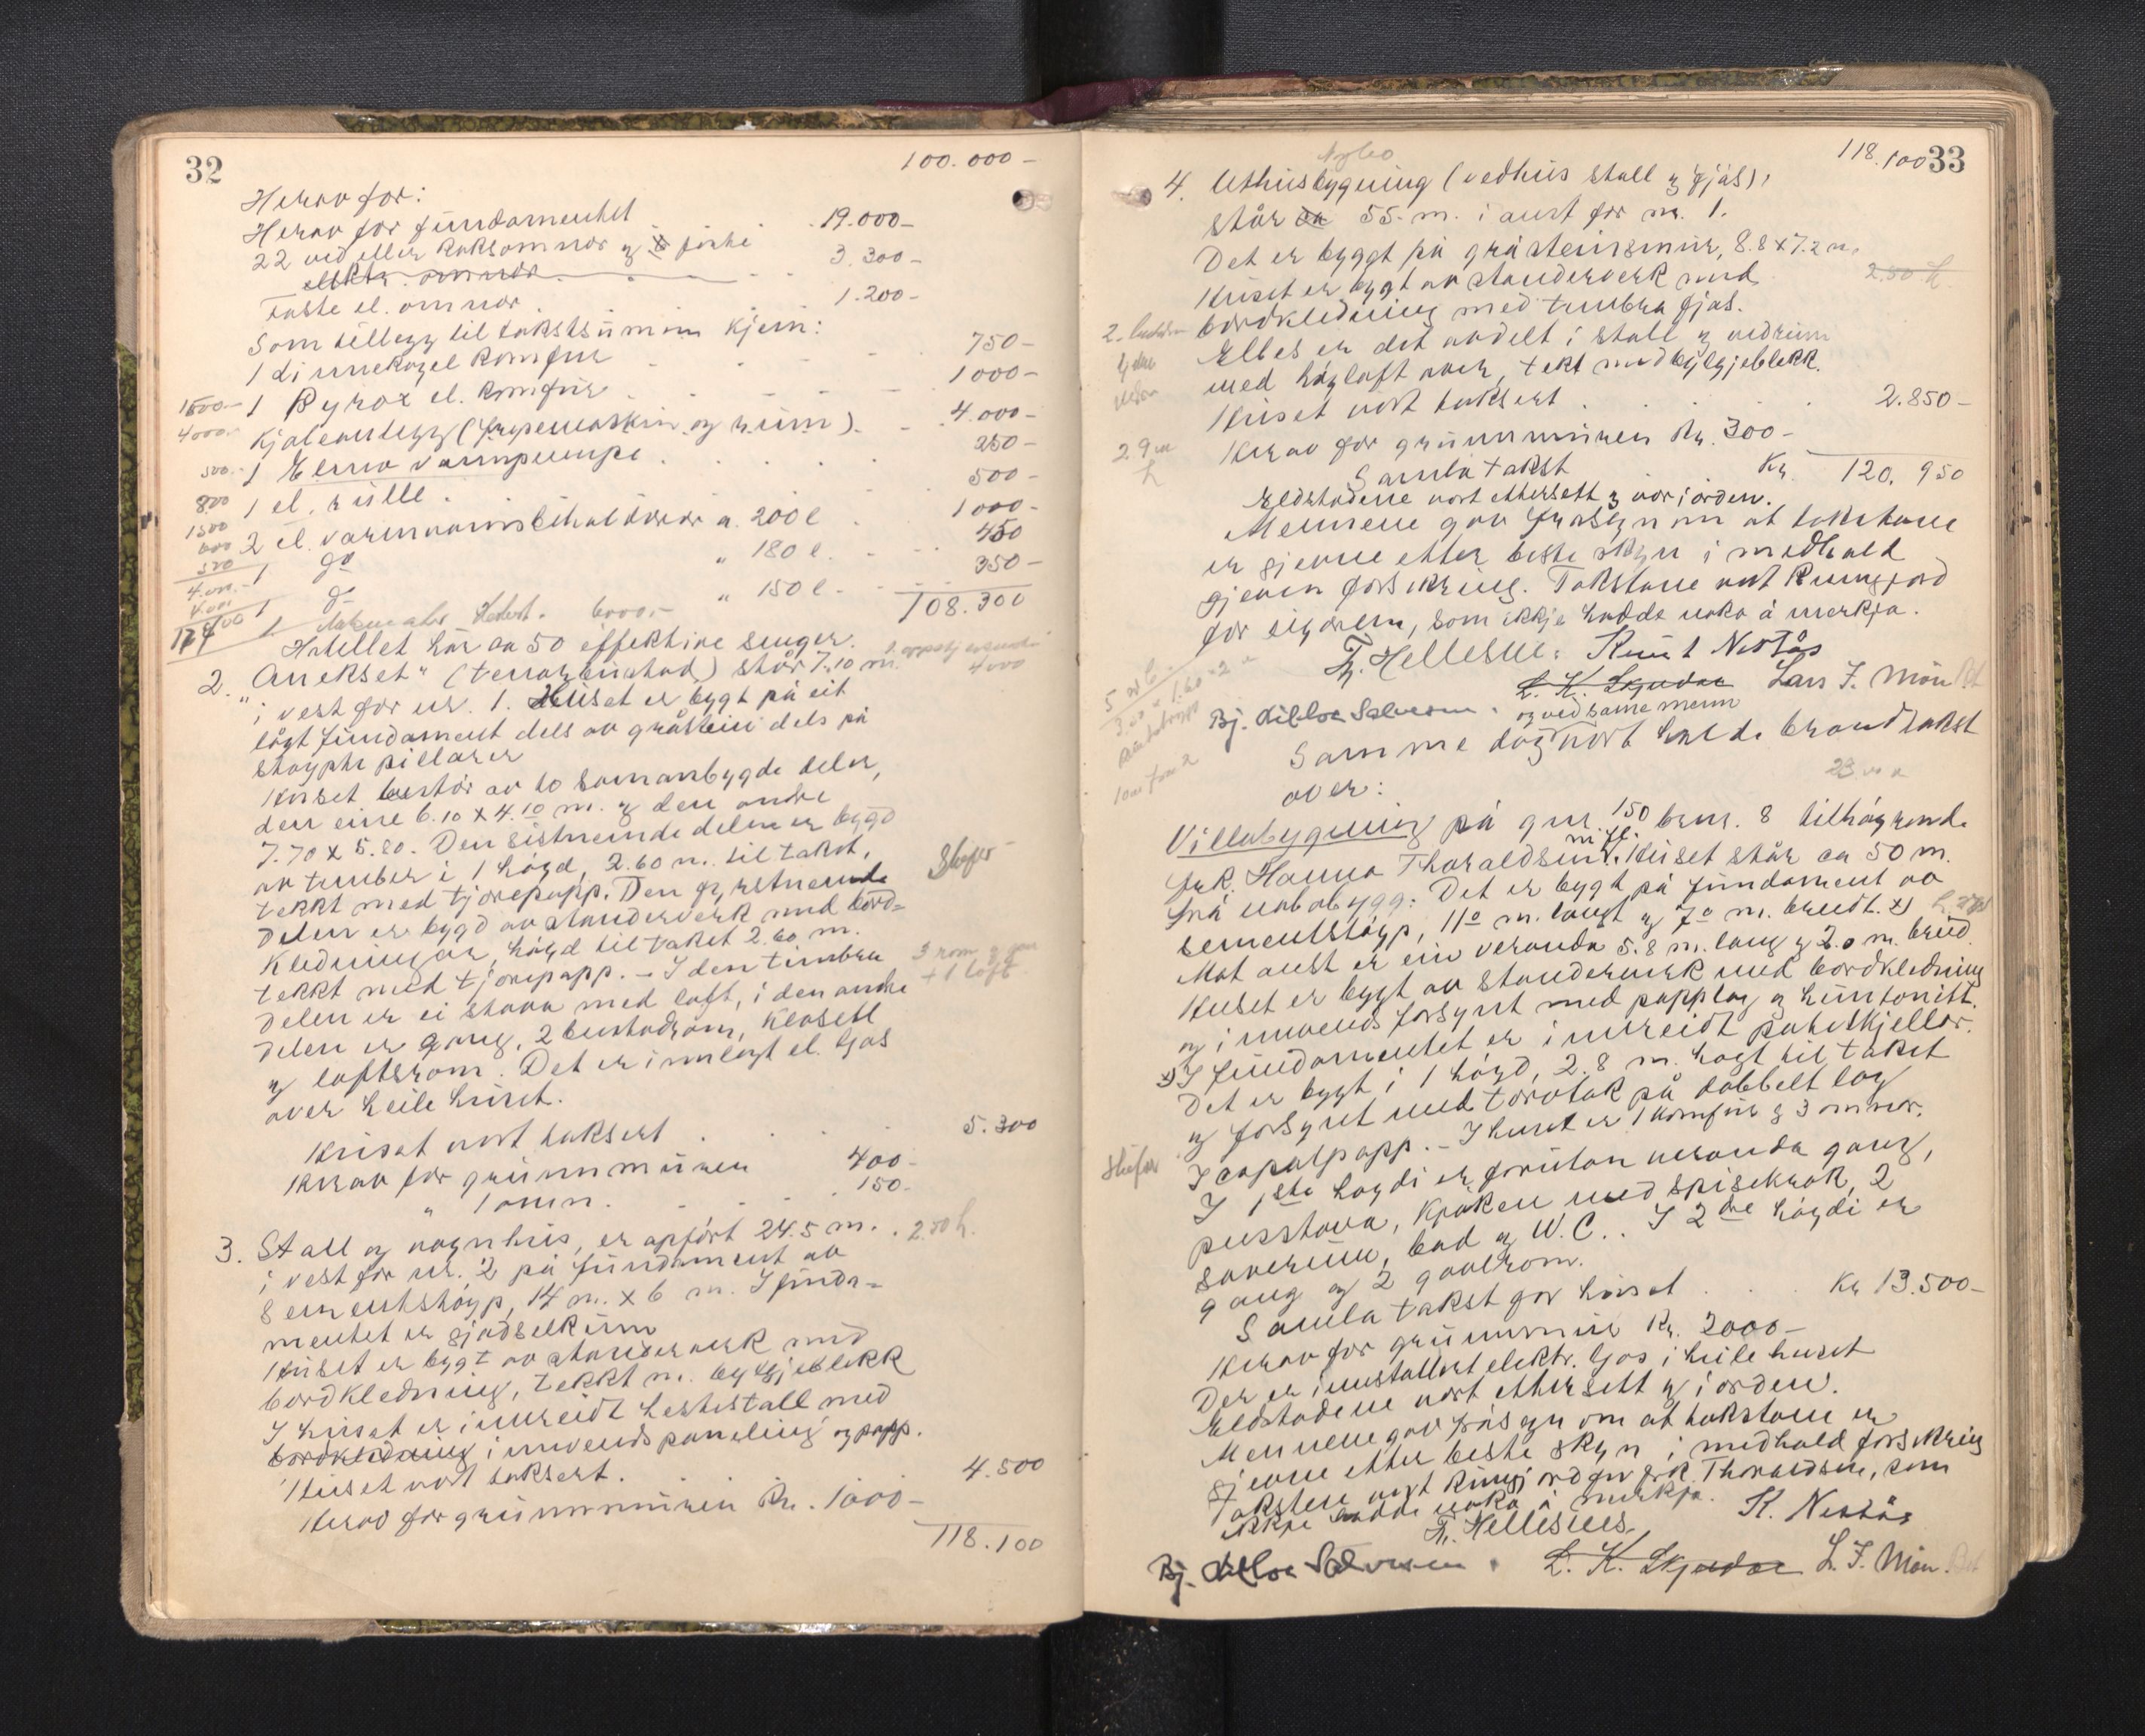 32
100.000 –
Herav for:
Herav for fundamentet 19.000 –
22 ved eller koksomnar og faste 3.300 –
elektr. omnar
Faste el. omnar 1.200 –
Som tillegg til takstsummen kjem:
1 komfur 750 –
1500.– 1 el. komfur 1000 –
4000.– Kjøleanlegg ( og rum) 4.000 –
500.– 1 varmpumpe 250 –
800 1 el. rulle 500 –
1500 2 el. varmvannsbehaldarar a 200 l 1000 –
600 1 do " 180 l. 450
500 1 do " 150 l. 350 –
6000.– 108.300
Hotellet har ca 50 effektive senger.
2. "Anekset" ( ) står 7.10 m. 4000
i vest for nr. 1. Huset er bygt på eit
lågt fundament dels av gråstein dels på
støypte pillarer
Huset består av to samanbygde deler,
den eine 6.10 x 4.10 m. og den andre
7.70 x 5.80. Den sistnemnde delen er bygd
av tømber i 1 høgd, 2.60 m. til taket,
tekkt med tjørepapp. Den fyrstnemnde
delen er bygd av standerverk med bord=
kledningar, høgd til taket 2.60 m.
tekkt med tjørepapp. – I den timbra 3 rom g gang
delen er ei stova med loft, i den andre + 1 loft
delen er gang, 2 bustadrom, klosett
og loftsrom. Det er innlagt el. ljos
over heile huset.
Huset vart taksert 5.300
Herav for grunnmuren 400 –
" 1 omn. 150 –
3. Stall og vognhus, er opført 24.5 m.
i vest for nr. 2 på fundament av
sementstøyp, 14 m. x 6 m. I funda=
mentet er gjødselkum
Huset er bygt av standerverk med
bordkledning, tekkt m. bylgjeblekk
I huset er innreidt hestestall med
bordkledning innvends paneling og papp.
Huset vart taksert. 4.500
Herav for grunnmuren Kr. 1000 –
118.100
118.100 33
4. Uthusbygning (vedhus stall og fjøs),
står ca 55 m. i aust for nr. 1.
Det er byggt på gråsteinsmur, 8.8 x 7.2 m.
Huset er bygt av standerverk med
bordkledning med timbra fjøs.
Elles er det avdelt i stall og vedrum
med høyloft over, tekt med bylgjeblekk.
Huset vart taksert 2.850 –
Herav for grunnmuren Kr. 300 –
Samla takst Kr. 120.950
Eldstadene vart ettersett og var i orden.
Mennene gav fråsegn om at takstane
er gjevne etter beste skyn i medhald
gjeven forsikring. Takstane vart kunngjord
for eigaren, som ikkje hadde noko å merkja.
Hellesnes. Knut Nestås
L. K. Skjeldar Lars J. Møn
Bj. Salvesen. og ved same menn
Samme dag vart halde brandtakst
over:
Villabygning på gnr. 150 bnr. 8 tilhøyrende
frk. Hanna Thoraldsen m.fl. Huset står ca 50 m.
frå nabobygg. Det er bygt på fundament av
sementstøyp, 11.0 m. langt og 7.0 m. breidt. x)
Mot aust er ein veranda 5.8 m. lang og 2.0 m. breid
Huset er bygt av standerverk med bordkledning
og innvends forsynt med papplag og huntonitt.
x) I fundamentet er innreidt potetkjellar.
Det er bygt i 1 høgd, 2.8 m. høgt til taket
og forsynt med torvtak på dobbelt lag
Icopalpapp. – I huset er 1 komfur og 3 omnar.
I 1ste høgdi er forutan veranda gang,
peisstova, kjøken med spisekrok, 2
soverum, bad og W.C.. I 2dre høgdi er
gang og 2 gavlrom.
Samla takst for huset Kr 13.500 –
Herav for grunnmur Kr. 2000 –
Der er innstallert elektr. ljos i heile huset
Eldstadene vart ettersett og i orden.
Mennene gav fråsegn om at takstane er
gjevne etter beste skyn i medhald forsikring
Takstene vart kungjord for frk. Thoraldsen, som
ikkje hadde noko å merkja.
Hellesnes. K. Nestås
Bj. Salvesen. L. K. Skjeldar L. J. Møn.